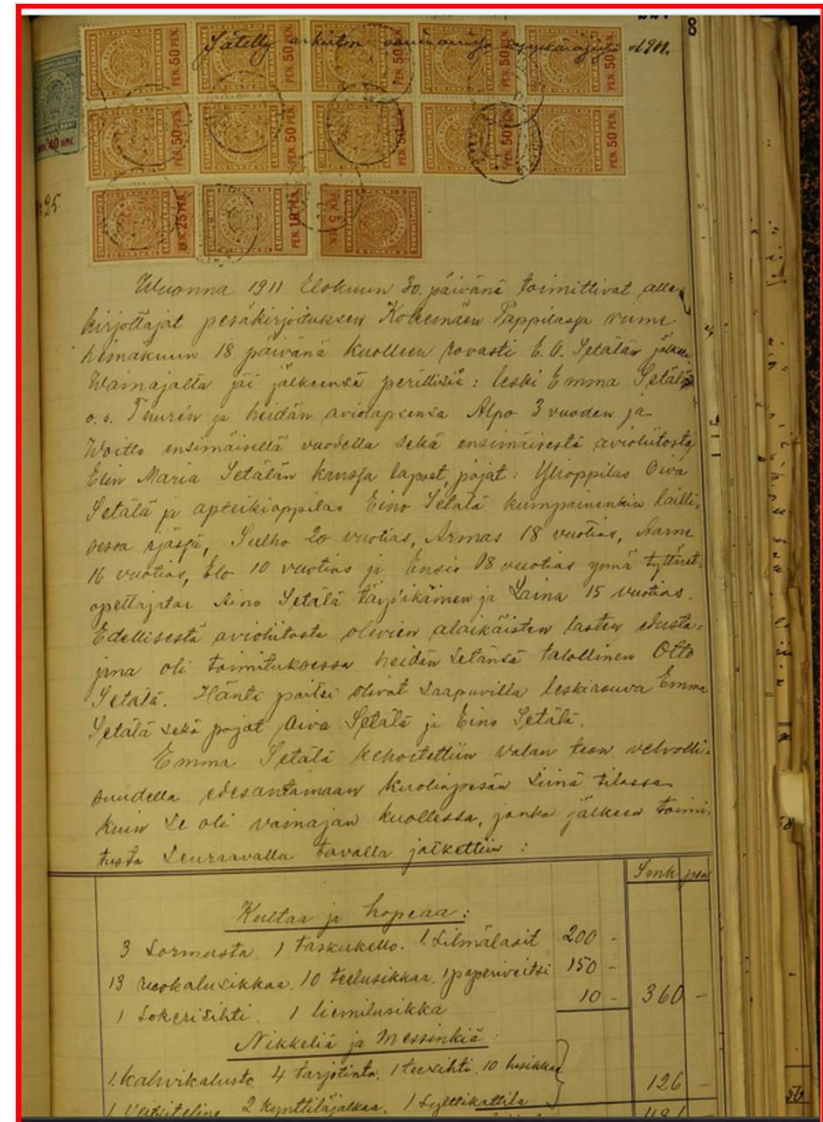 8
Jätetty 1911.
PEN. 50 PEN.
PEN. 50 PEN.
PEN. 50 PEN.
PEN. 50 PEN.
PEN. 50 PEN.
PEN. 50 PEN.
PEN. 50 PEN.
PEN. 50 PEN.
40 PEN.
25.
PEN. 25 PEN.
PEN. 10 PEN.
PEN. 5 PEN.
Wuonna 1911 Elokuun 30. päivänä toimittivat alle
kirjottajat pesäkirjoituksen Pappilassa viime
heinäkuun 18 päivänä kuolleen rovasti E. A. Setälän jälkeen
Wainajalta jäi jälkeensä perillisiä: leski Emma Setälä
o. s. Thurén ja heidän aviolapsensa Alpo 3 vuoden ja
Woitto ensimäisellä vuodella sekä ensimäisestä avioliitosta
Elin Maria Setälän kanssa lapset, pojat: Ylioppilas Oiva
Setälä ja apteikioppilas Eino Setälä kumpainenkin lailli-
sessa ijässä, Sulho 20 vuotias, Armas 18 vuotias, Aarne
16 vuotias, Elo 10 vuotias ja Ensio 08 vuotias ynnä tyttäret:
opettajatar Aino Setälä täysikäinen ja Laina 15 vuotias.
Edellisestä avioliitosta olevien alaikäisten lasten edusta-
jana oli toimituksessa heidän setänsä talollinen Otto
Setälä. Häntä paitsi olivat saapuvilla leskirouva Emma
Setälä sekä pojat Oiva Setälä ja Eino Setälä.
Emma Setälä kehoitettiin valan teon velvolli-
suudella edesantamaan kuolinpesän siinä tilassa
kuin se oli vainajan kuollessa, jonka jälkeen toimi-
tusta seuraavalla tavalla jatkettiin:
Smk pen
Kultaa ja hopeaa:
3 sormusta. 1 taskukello. 1 silmälasit 200 -
13 ruokalusikkaa. 10 teelusikkaa. 1 paperiveitsi 150 -
1 sokerisihti. 1 liemilusikka 10 - 360 -
Nikkeliä ja Messinkiä:
1 kahvikalusto. 4 tarjotinta. 1 teesihti. 10 lusikkaa
126 -
1 veitsiteline 2 kynttiläjalkaa. 1 sylttikattila